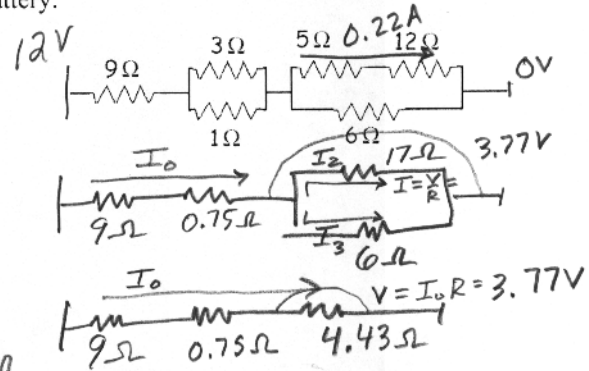 ttery.
12V 9Ω 3Ω 5Ω 0.22A 12Ω 0V
1Ω 6Ω
I₀ I₂ 17Ω 3.77V
I=V/R=
9Ω 0.75Ω I₃ 6Ω
I₀ V=I₀R=3.77V
9Ω 0.75Ω 4.43Ω